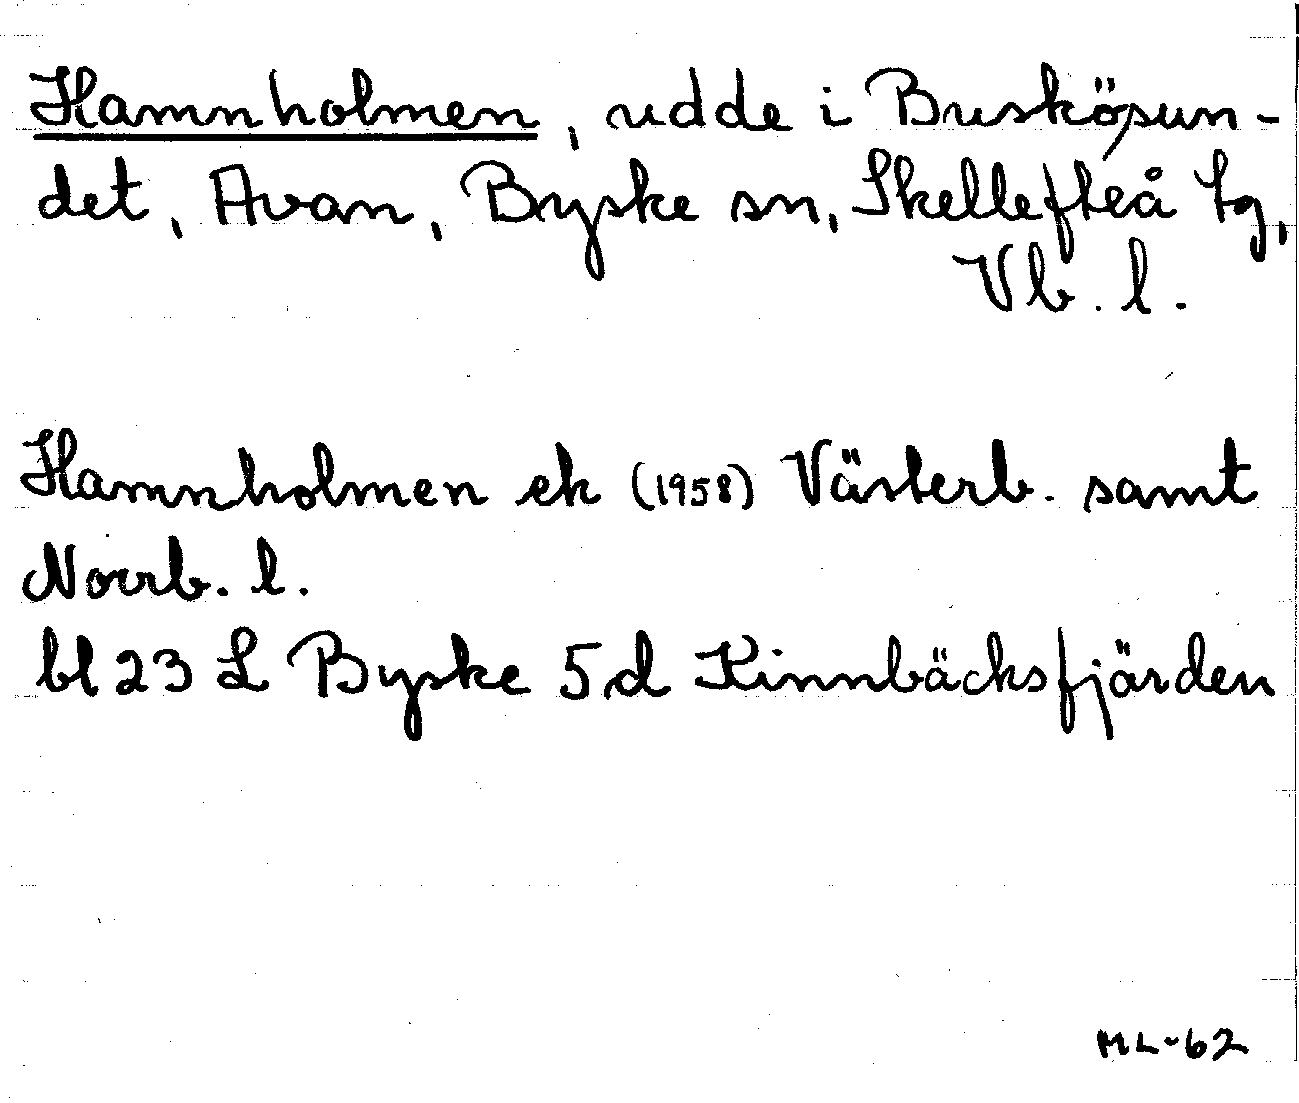 Hamnholmen, udde i Busködsun-
det, Avan, Byske sn, Skellefteå tg,
Vb. l.
Hamnholmen ek (1958) Västerb. samt
Norrb. l.
bl 23 L Byske 5d Kinnbäcksfjärden
ML-62